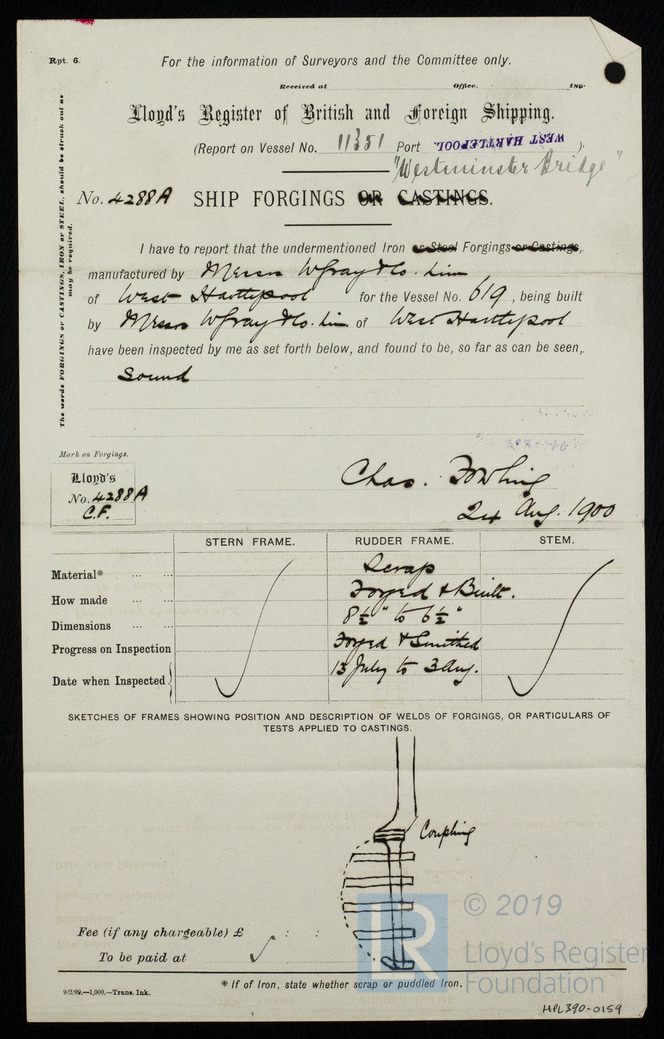 Rpt. 6.
For the information of Surveyors and the Committee only.
Received at Office. 189
Lloyd's Register of British and Foreign Shipping.
(Report on Vessel No. 11351 Port WEST HARTLEPOOL. ).
"Westminster Bridge"
No. 4288A SHIP FORGINGS OR CASTINGS.
The words FORGINGS or CASTINGS, IRON or STEEL, should be struck out as
may be required.
I have to report that the undermentioned Iron or Steel Forgings or Castings,
manufactured by Messrs W Gray & Co. Lim
of West Hartlepool for the Vessel No. 619, being built
by Messrs W Gray & Co. Lim. of West Hartlepool
have been inspected by me as set forth below, and found to be, so far as can be seen,
Sound
Mark on Forgings.
Lloyd's
No. 4288A
C.F.
Chas. Fowling
24 Aug. 1900
STERN FRAME. RUDDER FRAME. STEM.
Material* ... ... Scrap
How made ... ... Forged & Built.
Dimensions ... ... 8½" to 6½"
Progress on Inspection Forged & Smithed
Date when Inspected 13 July to 3 Aug.
SKETCHES OF FRAMES SHOWING POSITION AND DESCRIPTION OF WELDS OF FORGINGS, OR PARTICULARS OF
TESTS APPLIED TO CASTINGS.
Coupling
Fee (if any chargeable) £ : :
To be paid at
* If of Iron, state whether scrap or puddled Iron.
9/2/99.—1,000.—Trans. Ink.
LR
© 2019
Lloyd's Register
Foundation
HPL390-0159